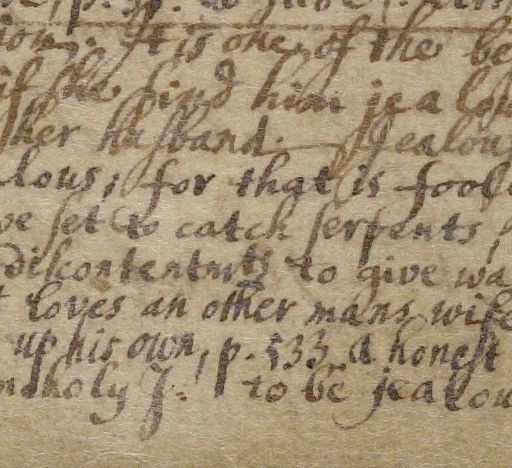 ion. It is one of the be
if she find him jealou
her husband. Jealous
lous; for that is fool
ve set to catch serpents,
discontentmts to give wa
t loves an other mans wife
up his own, p. 533. A honest
to be jealou